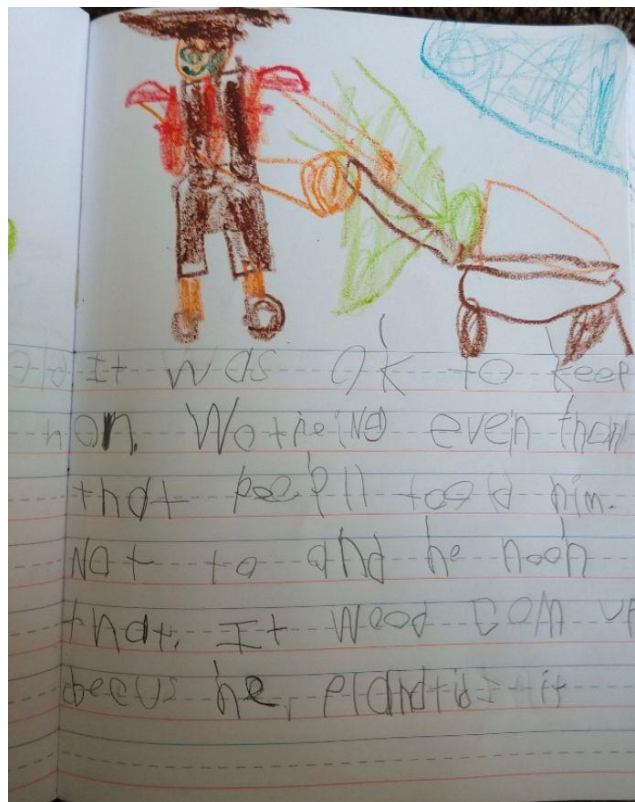 It was Ok to keep
on. Wotreing even thow
that peepll toold him.
Not to and he noou
that, It Wood Com up
becus he, plantid it